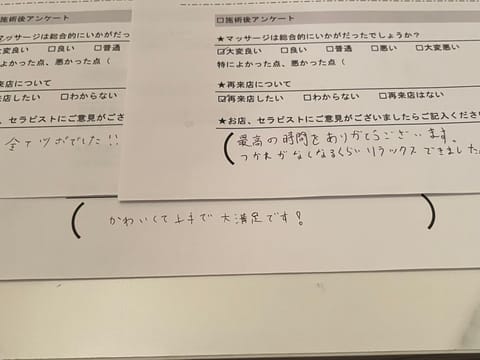 施術後アンケート
★マッサージは総合的にいかがだっ
□大変良い □良い □普通
特によかった点、悪かった点（
来店について
来店したい □わからない
お店、セラピストにご意見がござ
全てツボでした!!
□施術後アンケート
★マッサージは総合的にいかがだったでしょうか？
☑大変良い □良い □普通 □悪い □大変悪い
特によかった点、悪かった点（
★再来店について
☑再来店したい □わからない □再来店はない
★お店、セラピストにご意見がございましたらご記入ください
最高の時間をありがとうございます。
つかれがなくなるくらいリラックスできました
かわいくて上手で大満足です!